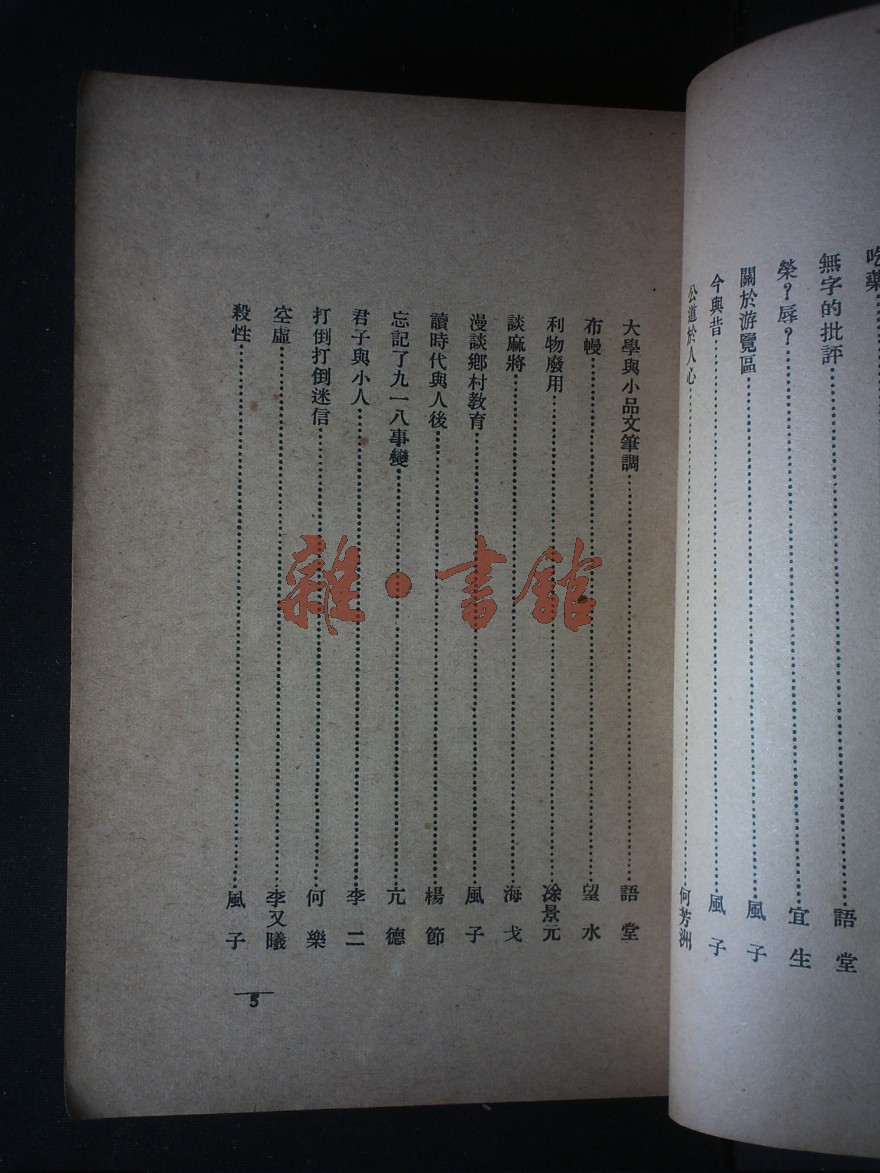 吃藥
無字的批評……語堂
榮？辱？……宜生
關於游覽區……風子
今與昔……風子
公道於人心……何芳洲
大學與小品文筆調……語堂
布幔……望水
利物廢用……涂景元
談麻將……海戈
漫談鄉村教育……風子
讀時代與人後……楊節
忘記了九一八事變……亢德
君子與小人……李二
打倒打倒迷信……何樂
空虛……李又曦
殺性……風子
5
雜·書館